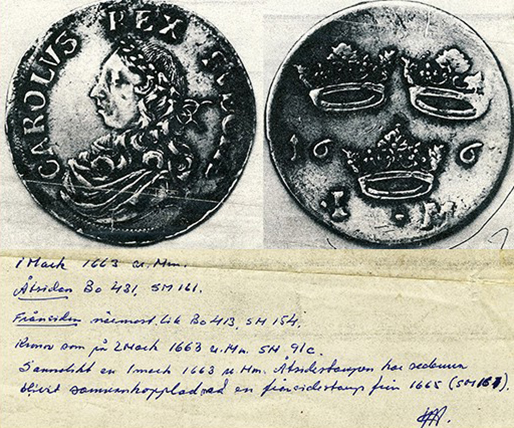 CAROLVS REX
16 6
I · M
1 Mark 1663 u. Mm.
Åtsidan Bo 431, SM 161.
Frånsidan närmast lik Bo 413, SM 154.
Kronor som på 2 Mark 1663 u. Mm. SM 91c.
Sannolikt en 1 mark 1663 u Mm. Åtsidestampen har sedermera
blivit sammankopplad med en frånsidestamp från 1665 (SM 161).